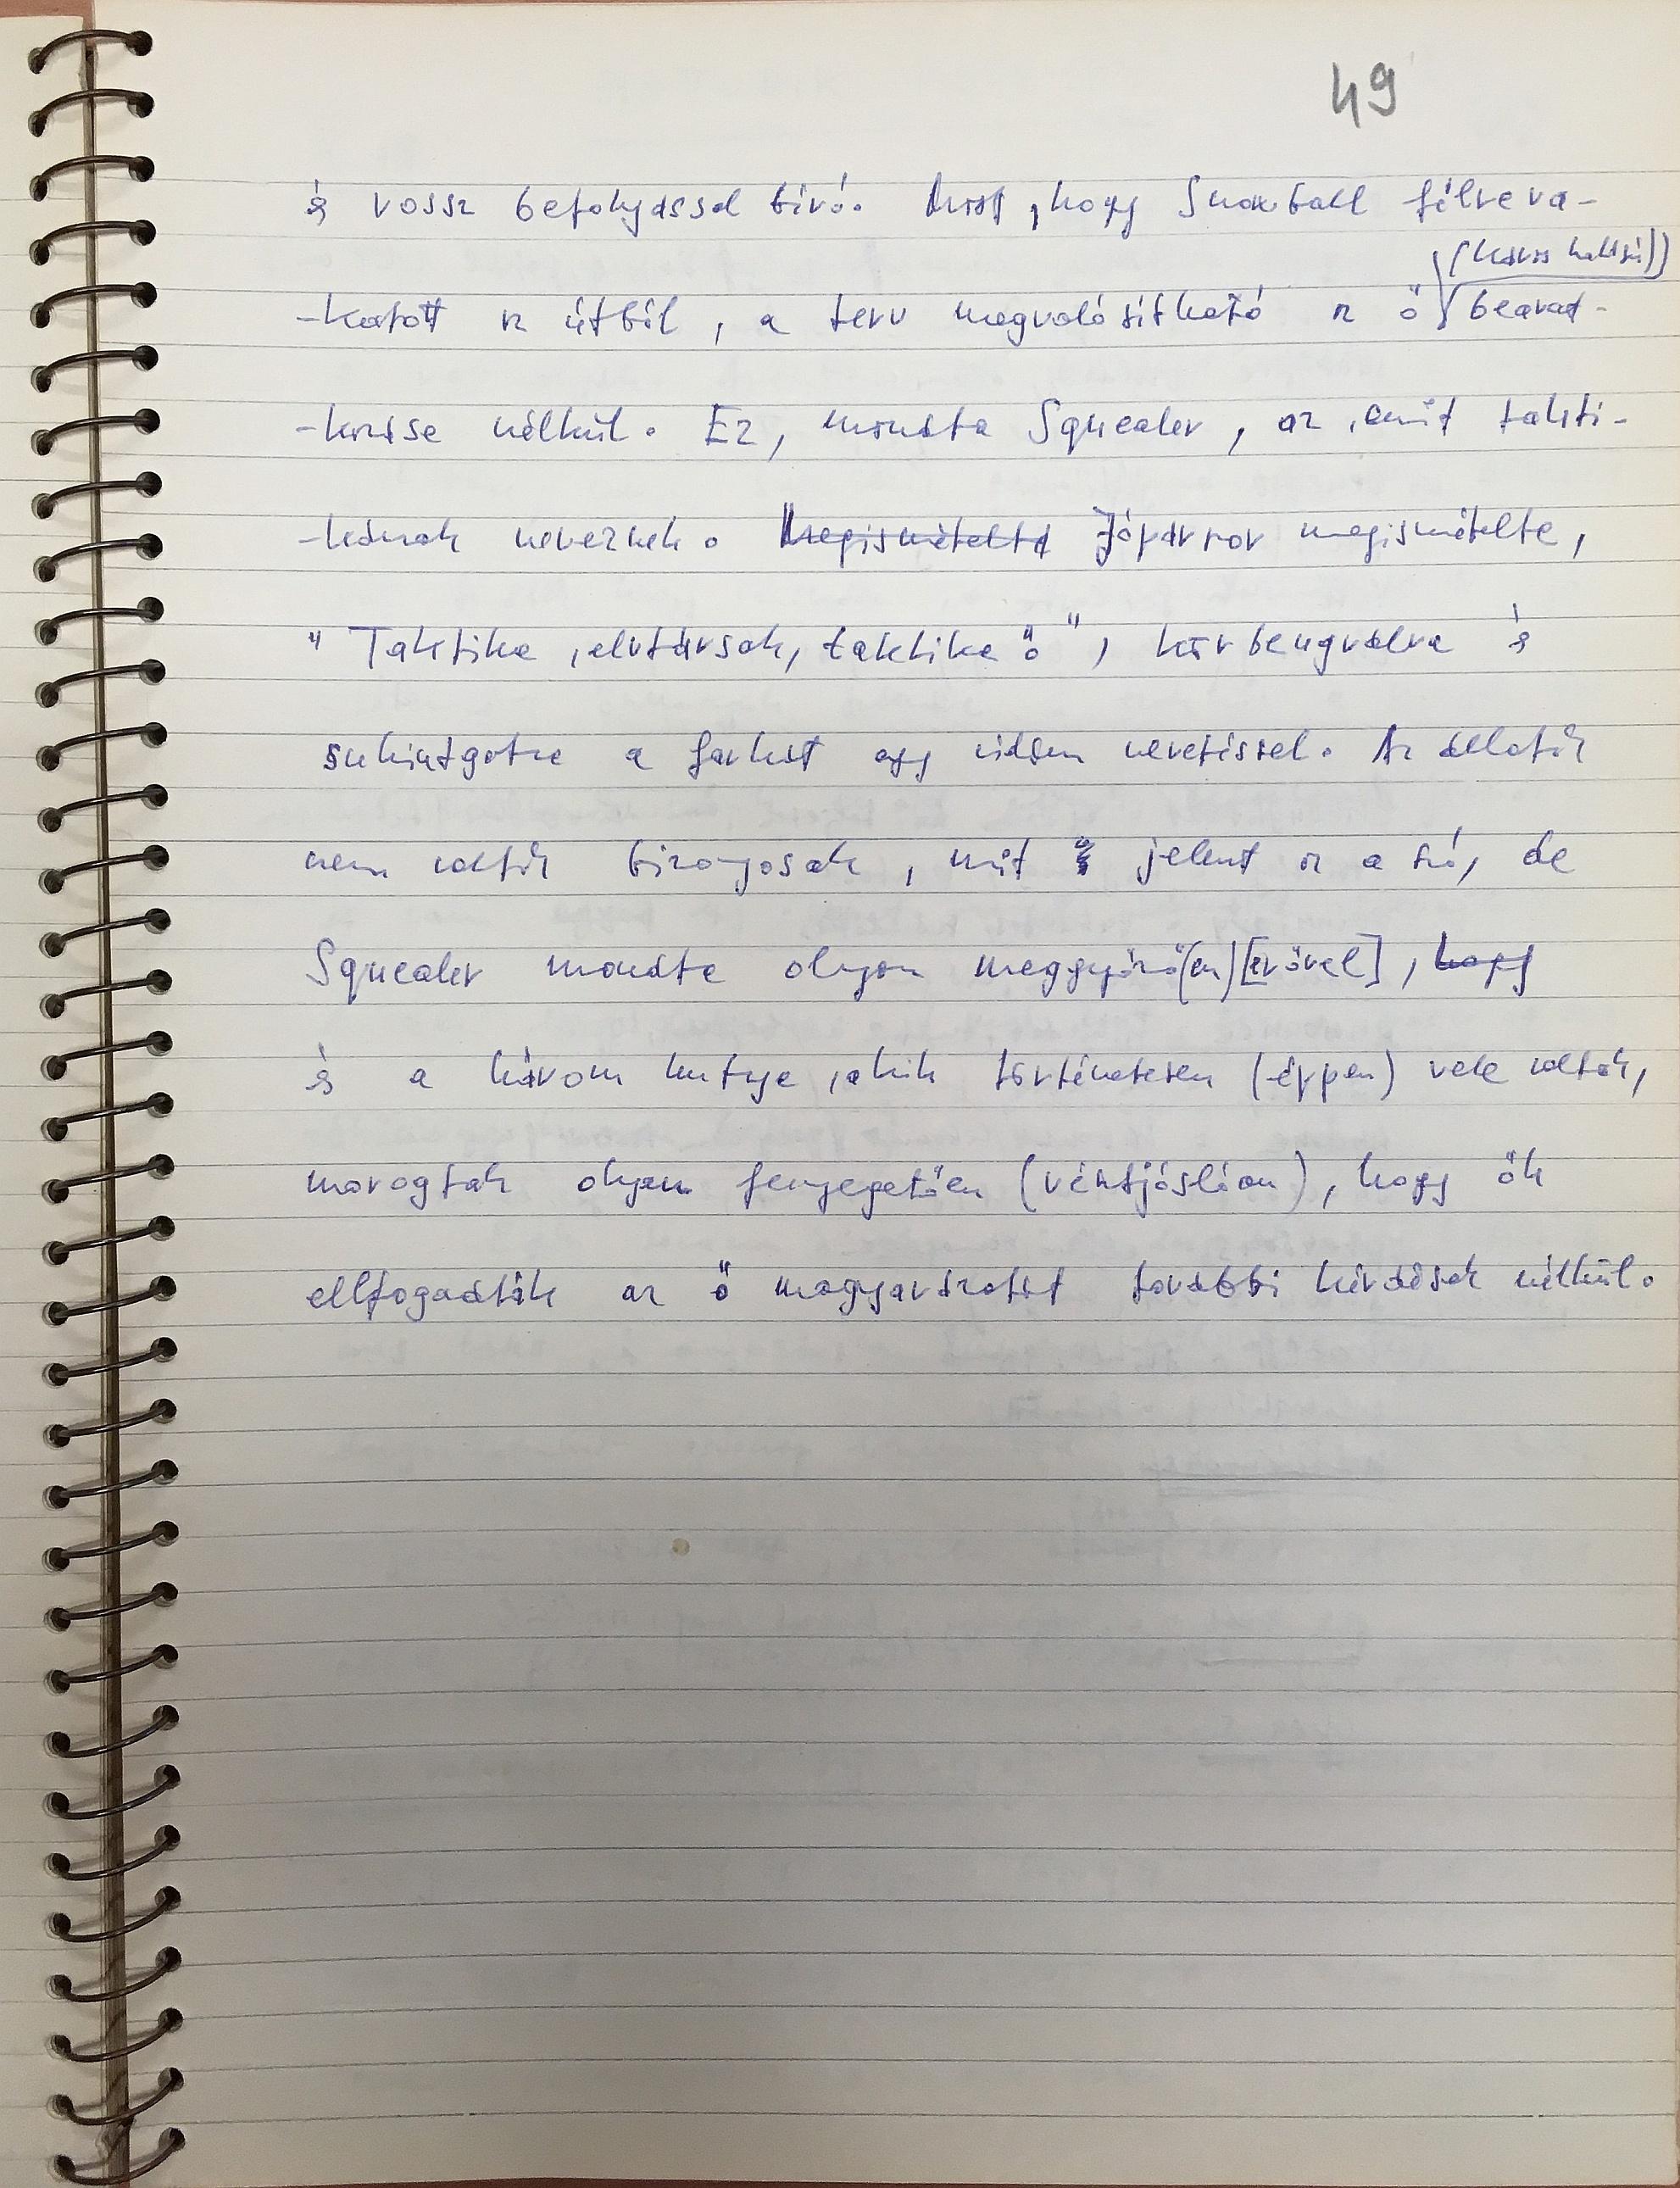 49
és rossz befolyással bíró. Most, hogy Snowball félreva-
(káros hatású)
-katott az útból, a terv megvalósítható az ő beavat-
-kozása nélkül. Ez, mondta Squealer, az, amit takti-
-kának neveznek. Megismételte Jópárszor megismételte,
"Taktika, elvtársak, taktika ő", körbeugrálva és
suhintgatva a farkát egy vidám nevetéssel. Az állatok
nem voltak bizonyosak, mit jelent ez a szó, de
Squealer mondta olyan meggyőző(en)[erővel], hogy
és a három kutya, akik történetesen (éppen) vele voltak,
morogtak olyan fenyegetően (vészjóslóan), hogy ők
elfogadták az ő magyarázatát további kérdések nélkül.